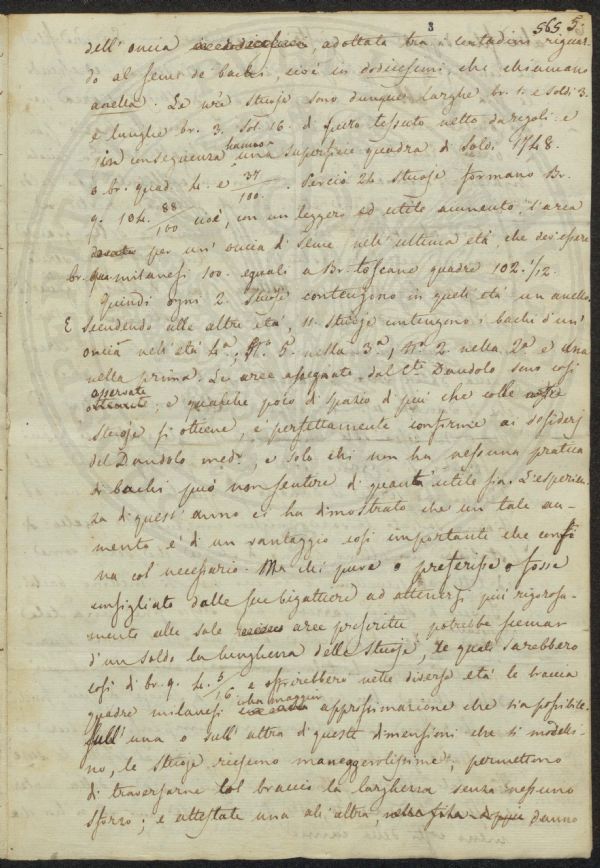 3 565 5
dell' oncia, adottata tra i contadini riguar-
do al seme de' bachi, cioè in dodicesimi, che chiamano
anella. Le nre Stuoje sono dunque larghe br. 1. e soldi 3.
e lunghe br. 3. Sol. 16. di puro tessuto netto da regoli: e
in conseguenza hanno una superficie quadra di Sold. 1748.
o br. quad. 4. e 37/100. Perciò 24 Stuoje formano Br.
q. 104. 88/100 cioè, con un leggero ed utile aumento, l'area
per un' oncia di Seme nell' ultima età, che dev' essere
br. qua. milanesi 100. eguali a Br. toscane quadre 102. 1/12.
Quindi ogni 2. Stuoje contengono in quell' età un anello.
E scendendo alle altre età, 11. Stuoje contengono i bachi d'un'
oncia nell' età 4ª, N.° 5. nella 3ª, N.° 2. nella 2ª e una
nella prima. Le aree assegnate dal Cte Dandolo sono così
osservate; e qualche poco di spazio di più che colle nostre
Stuoje si ottiene, è perfettamente conforme ai desiderj
del Dandolo med.°, e solo chi non ha nessuna pratica
di bachi può non sentire di quanta utile sia. L'esperien-
za di quest' anno ci ha dimostrato che un tale au-
mento è di un vantaggio così importante che confi
na col necessario. Ma chi pure o preferisse o fosse
consigliato dalle sue bigattiere ad attenersi più rigorosa-
mente alle sole aree prescritte, potrebbe scemar
d'un Soldo la lunghezza delle Stuoje, le quali sarebbero
così di br. q. 4. 5/16. e offrirebbero nelle diverse età le braccia
quadre milanesi colla maggior approssimazione che sia possibile.
Sull' una o sull' altra di queste dimensioni che si modelli-
no, le Stuoje riescono maneggevolissime, permettono
di traversarne col braccio la larghezza senza nessuno
sforzo; e attestate una all' altra nella fila danno